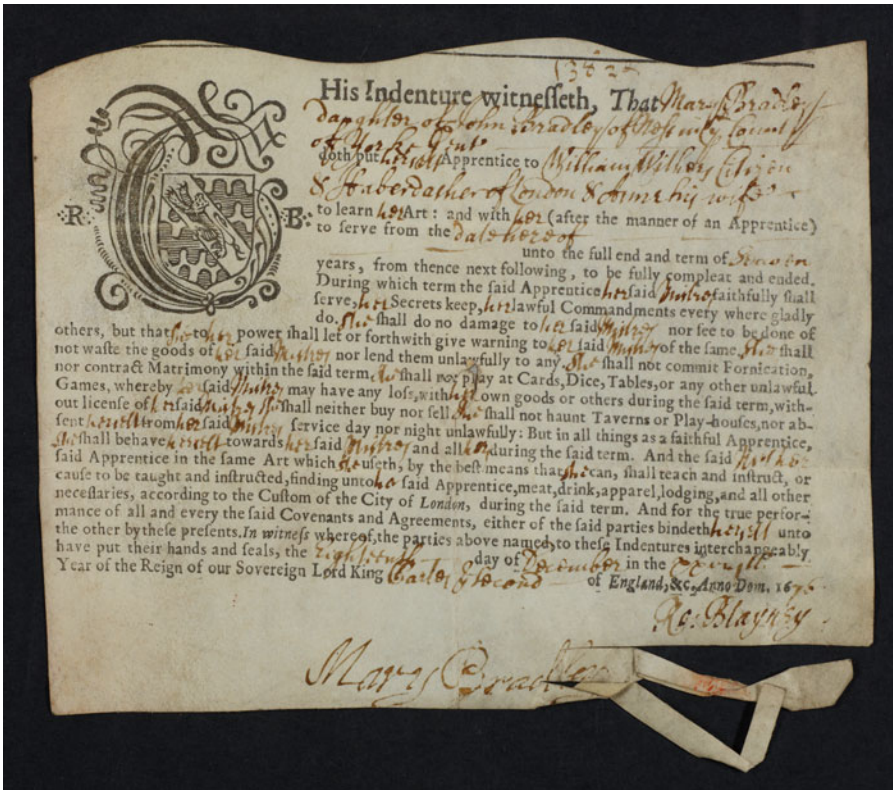 1382
His Indenture witnesseth, That Mary Bradley
daughter of John Bradley of County
of Yorke Gent
doth put herself Apprentice to William Wilkes Citizen
& Haberdasher of London & Anne his wife
to learn her Art: and with her (after the manner of an Apprentice)
R. B.
to serve from the date hereof
unto the full end and term of Seaven
years, from thence next following, to be fully compleat and ended.
During which term the said Apprentice her said Mistres faithfully shall
serve, her Secrets keep, her lawful Commandments every where gladly
do. she shall do no damage to her said Mistres nor see to be done of
others, but that she to her power shall let or forthwith give warning to her said Mistres of the same. She shall
not waste the goods of her said Mistres nor lend them unlawfully to any. she shall not commit Fornication,
nor contract Matrimony within the said term. she shall not play at Cards, Dice, Tables, or any other unlawful
Games, whereby her said Mistres may have any loss, with her own goods or others during the said term, with-
out license of her said Mistres she shall neither buy nor sell. she shall not haunt Taverns or Play-houses, nor ab-
sent herself from her said Mistres service day nor night unlawfully: But in all things as a faithful Apprentice,
she shall behave herself towards her said Mistres and all hers during the said term. And the said Mistres her
said Apprentice in the same Art which she useth, by the best means that she can, shall teach and instruct, or
cause to be taught and instructed, finding unto her said Apprentice, meat, drink, apparel, lodging, and all other
necessaries, according to the Custom of the City of London, during the said term. And for the true perfor-
mance of all and every the said Covenants and Agreements, either of the said parties bindeth herself unto
the other by these presents. In witness whereof, the parties above named, to these Indentures interchangeably
have put their hands and seals, the Eighteenth day of December in the xxviiith
Year of the Reign of our Sovereign Lord King Charles ye second of England, &c. Anno Dom. 1676
Ro: Blayney
Mary Bradley